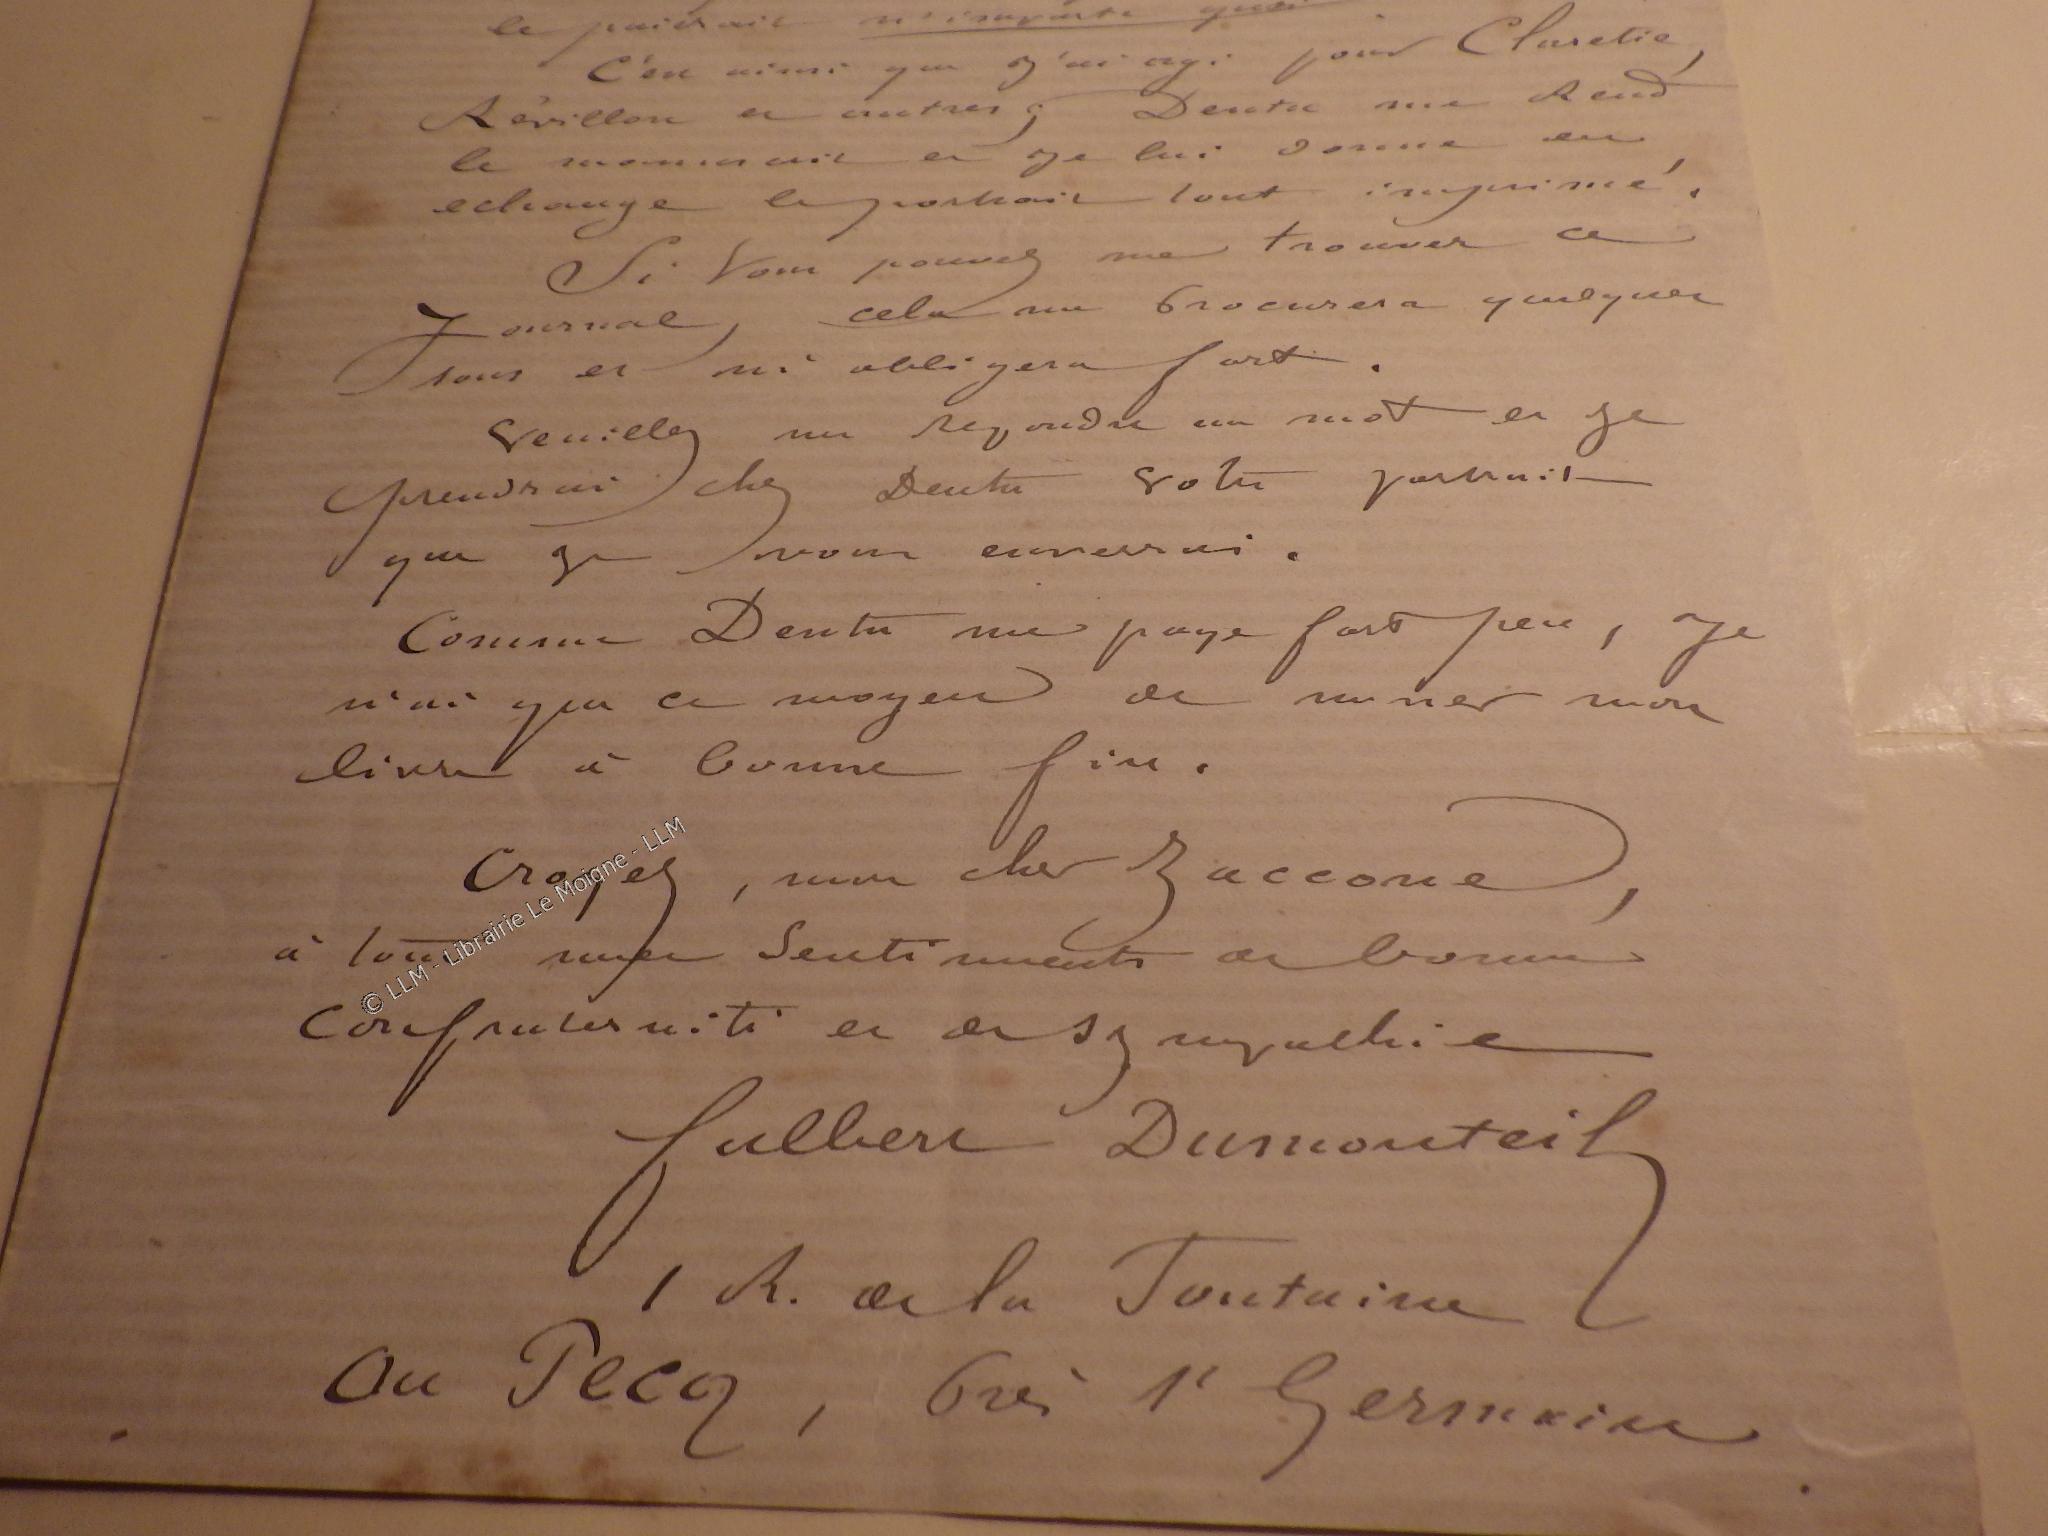 le paierais n'importe quoi
C'est ainsi que j'ai agi pour Claretie,
Révillon et autres; Dentu me Rend
le manuscrit et je lui donne en
echange le portrait tout imprimé.
Si Vous pouvez me trouver ce
Journal, cela me procurera quelques
sous et m'obligera fort.
Veuillez me repondre un mot et je
prendrai chez Dentu votre portrait
que je vous enverrai.
Comme Dentu me paye fort peu, je
n'ai que ce moyen de mener mon
livre à bonne fin.
Croyez, mon cher Zaccone,
à tous mes Sentiments de bonne
Confraternité et de sympathie
fulbert Dumonteil
1 R. de la Fontaine
Au Pecq, Près St Germain
© LLM - Librairie Le Moigne - LLM